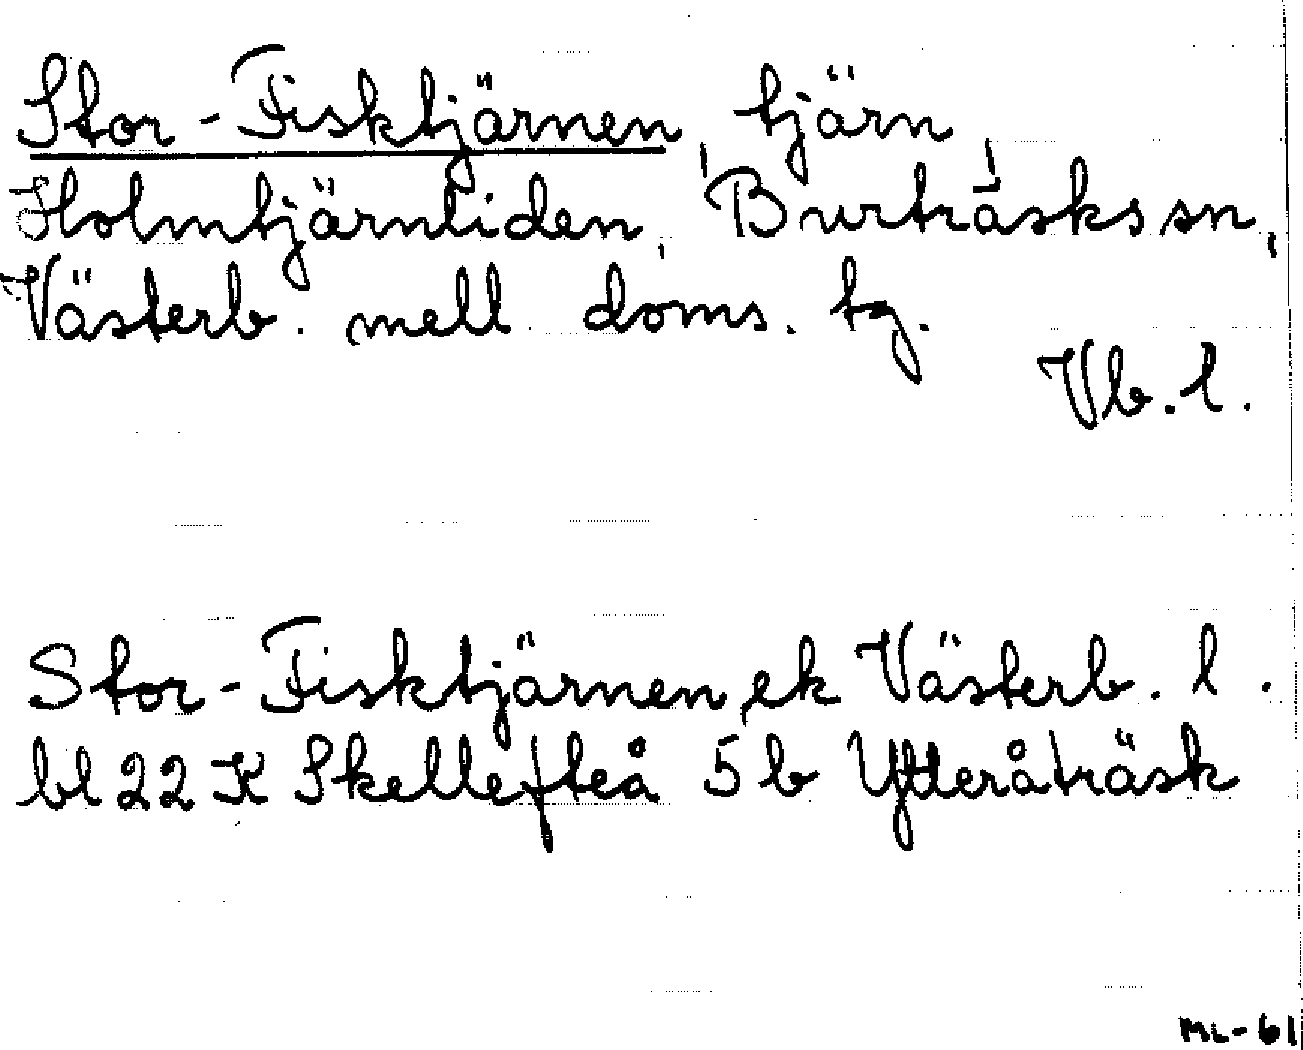 Stor-Fisktjärnen, tjärn,
Holmtjärnliden, Burträsks sn,
Västerb. mell. doms. tg.
Vb. l.
Stor-Fisktjärnen, ek Västerb. l.
bl 22 K Skellefteå 5 b Ytteråträsk
ML-61